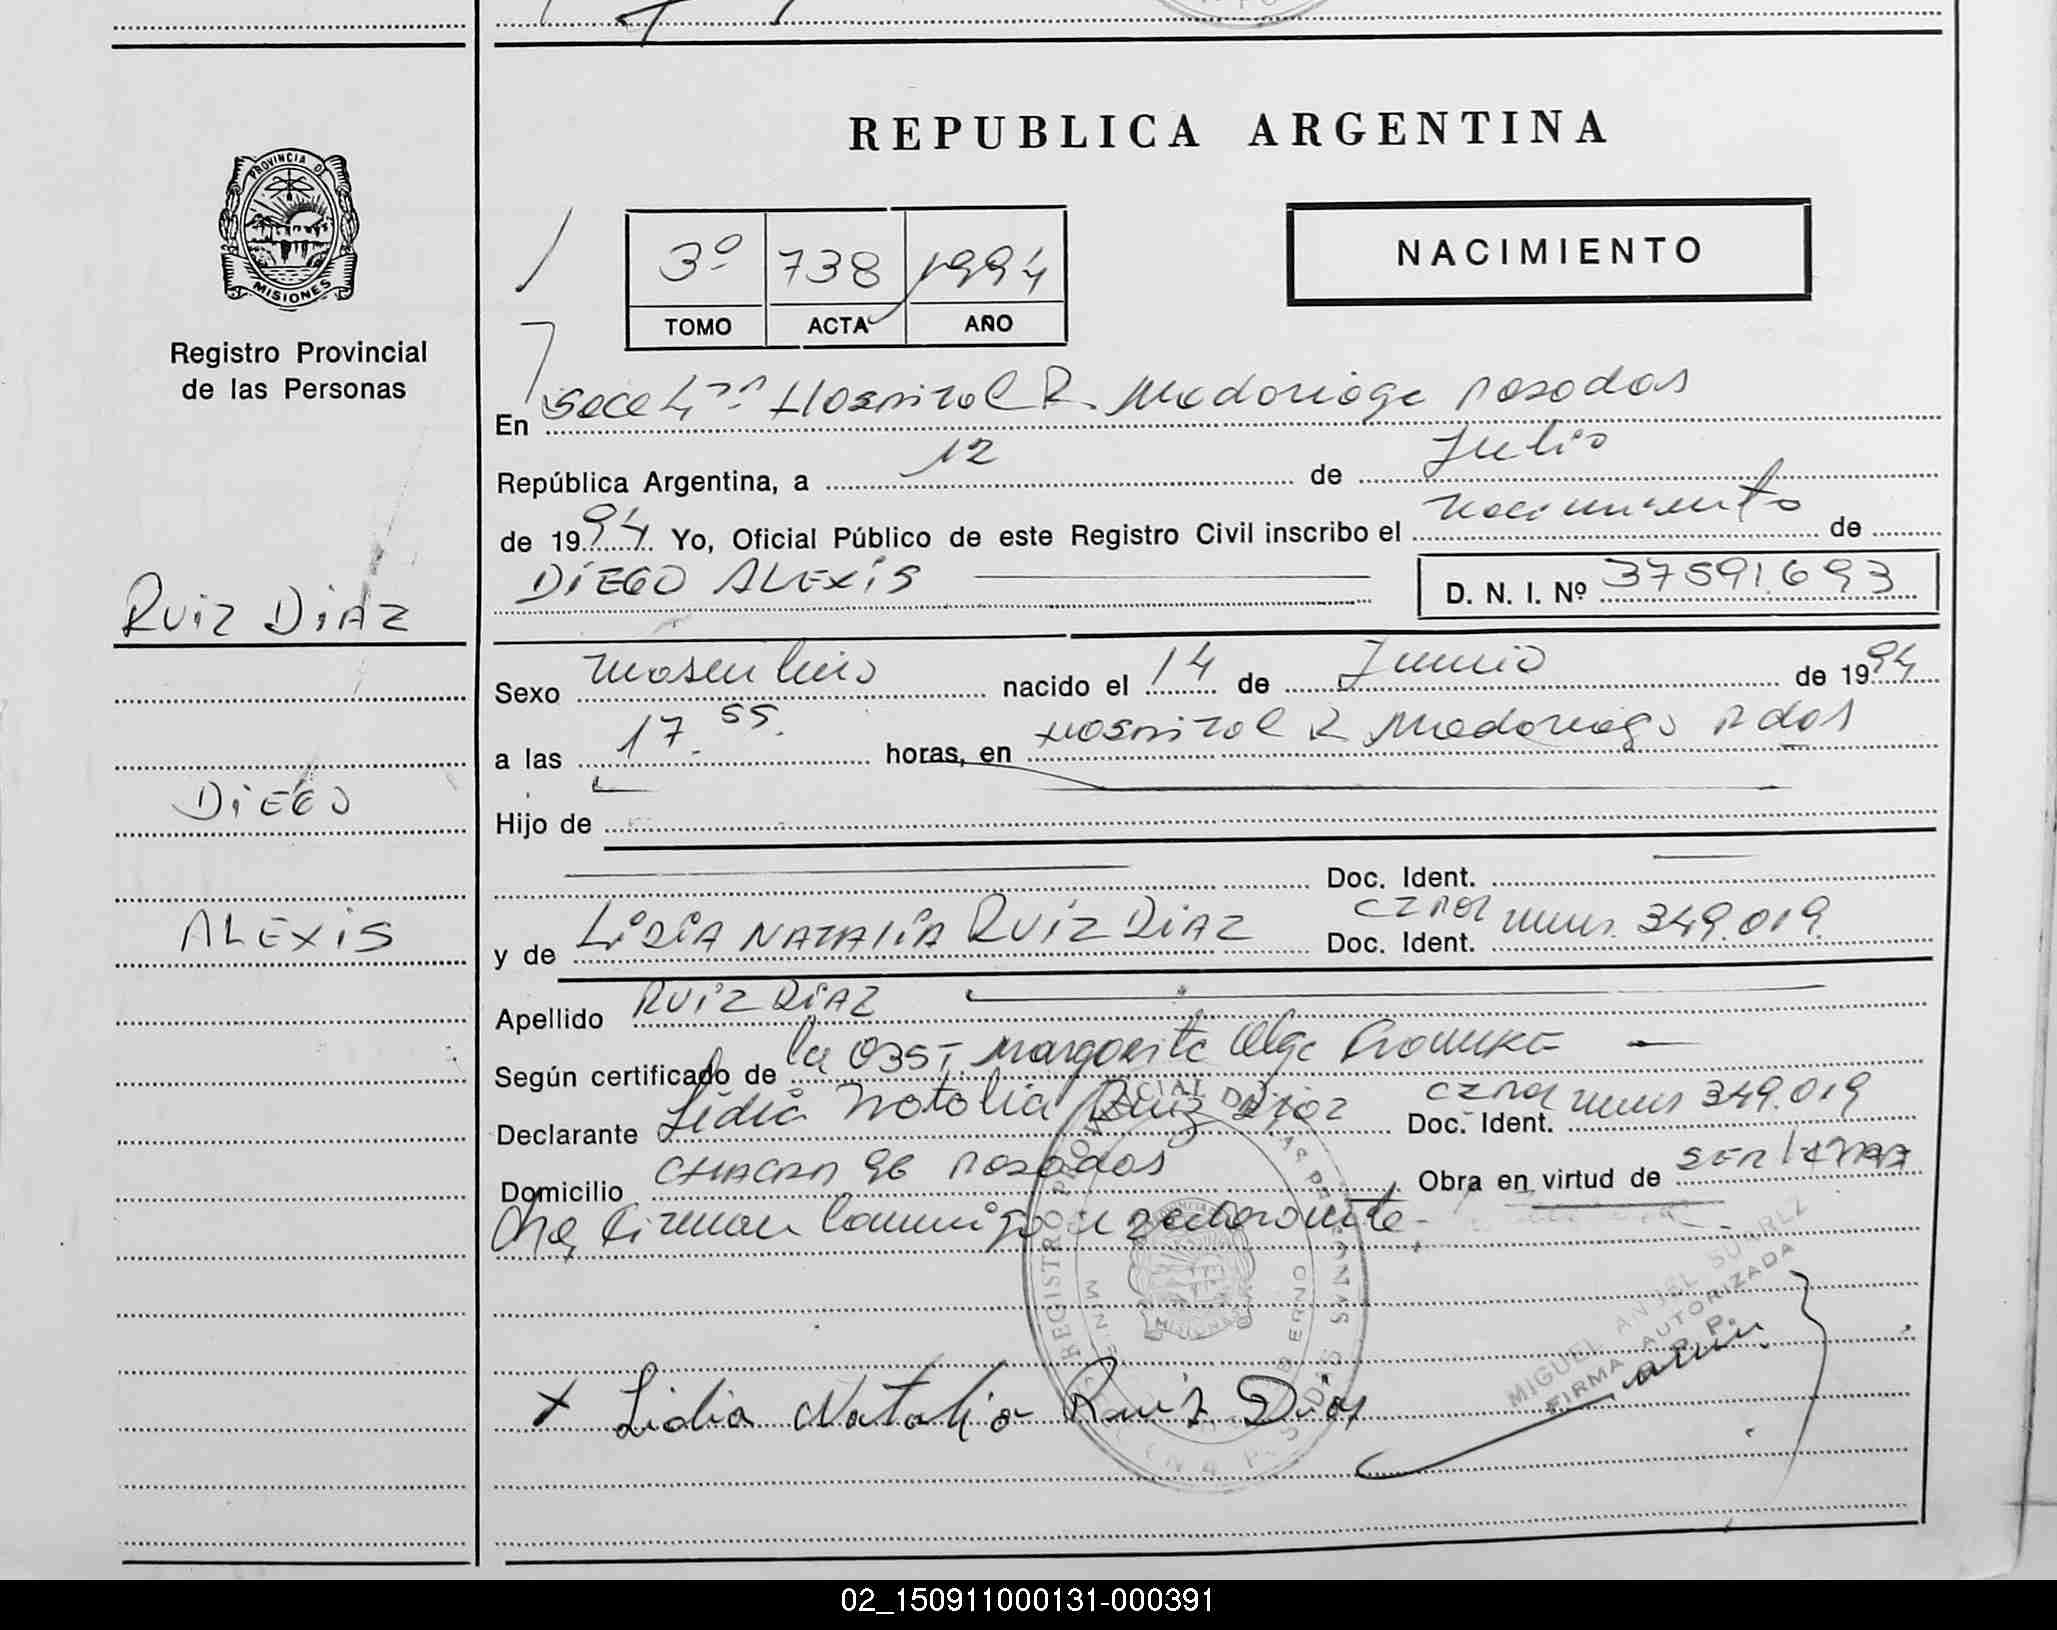 REPUBLICA ARGENTINA
PROVINCIA DE
MISIONES
Registro Provincial
de las Personas
3º 738 1994
TOMO ACTA AÑO
NACIMIENTO
En Secc 4ª Hospital R. Madariaga Posadas
República Argentina, a 12 de Julio
de 1994 Yo, Oficial Público de este Registro Civil inscribo el nacimiento de
DIEGO ALEXIS
D. N. I. Nº 37591.693
RUIZ DIAZ
Sexo masculino nacido el 14 de Junio de 1994
a las 17.55. horas, en Hospital R Madariaga Pdas
DIEGO
Hijo de
Doc. Ident.
ALEXIS
y de LIDIA NATALIA RUIZ DIAZ Doc. Ident. 349.019
Apellido RUIZ DIAZ
Según certificado de la Obst. Margarita Olga
Declarante Lidia Natalia Ruiz Diaz Doc. Ident. 349.019
Domicilio CHACRA 96 Posadas Obra en virtud de
firman conmigo
REGISTRO PROVINCIAL DE LAS PERSONAS
MISIONES
MIGUEL ANGEL SUAREZ
FIRMA AUTORIZADA
R. P. P.
x Lidia Natalia Ruiz Diaz
02_150911000131-000391